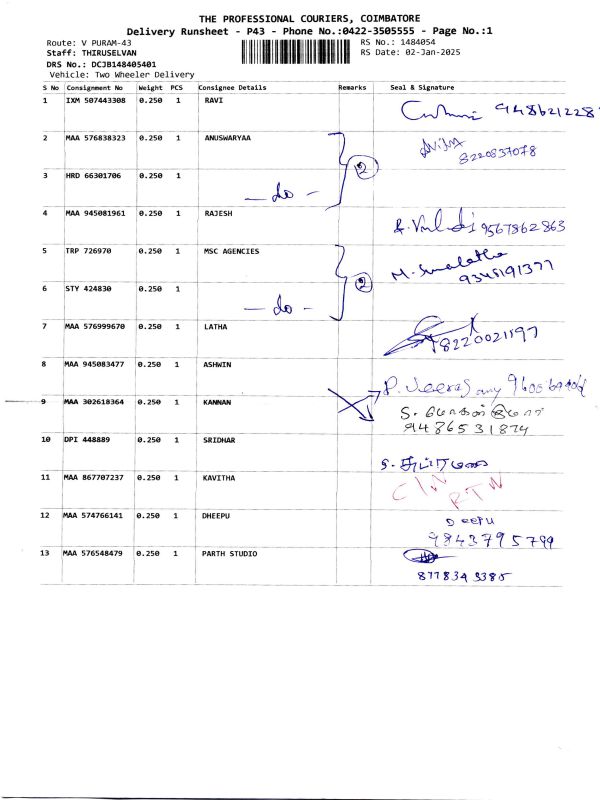 THE PROFESSIONAL COURIERS, COIMBATORE
Delivery Runsheet - P43 - Phone No.:0422-3505555 - Page No.:1
Route: V PURAM-43 RS No.: 1484054
Staff: THIRUSELVAN RS Date: 02-Jan-2025
DRS No.: DCJB148405401
Vehicle: Two Wheeler Delivery
S No Consignment No Weight PCS Consignee Details Remarks Seal & Signature
1 IXM 507443308 0.250 1 RAVI 9486212287
2 MAA 576838323 0.250 1 ANUSWARYAA 2
8220837078
3 HRD 66301706 0.250 1
- do -
4 MAA 945081961 0.250 1 RAJESH 9567862863
5 TRP 726970 0.250 1 MSC AGENCIES 2
9345191377
6 STY 424830 0.250 1
- do -
7 MAA 576999670 0.250 1 LATHA
8220021197
8 MAA 945083477 0.250 1 ASHWIN
9 MAA 302618364 0.250 1 KANNAN
9486531874
10 DPI 448889 0.250 1 SRIDHAR
11 MAA 867707237 0.250 1 KAVITHA RTN
12 MAA 574766141 0.250 1 DHEEPU Deepu
9843795799
13 MAA 576548479 0.250 1 PARTH STUDIO
8778343385